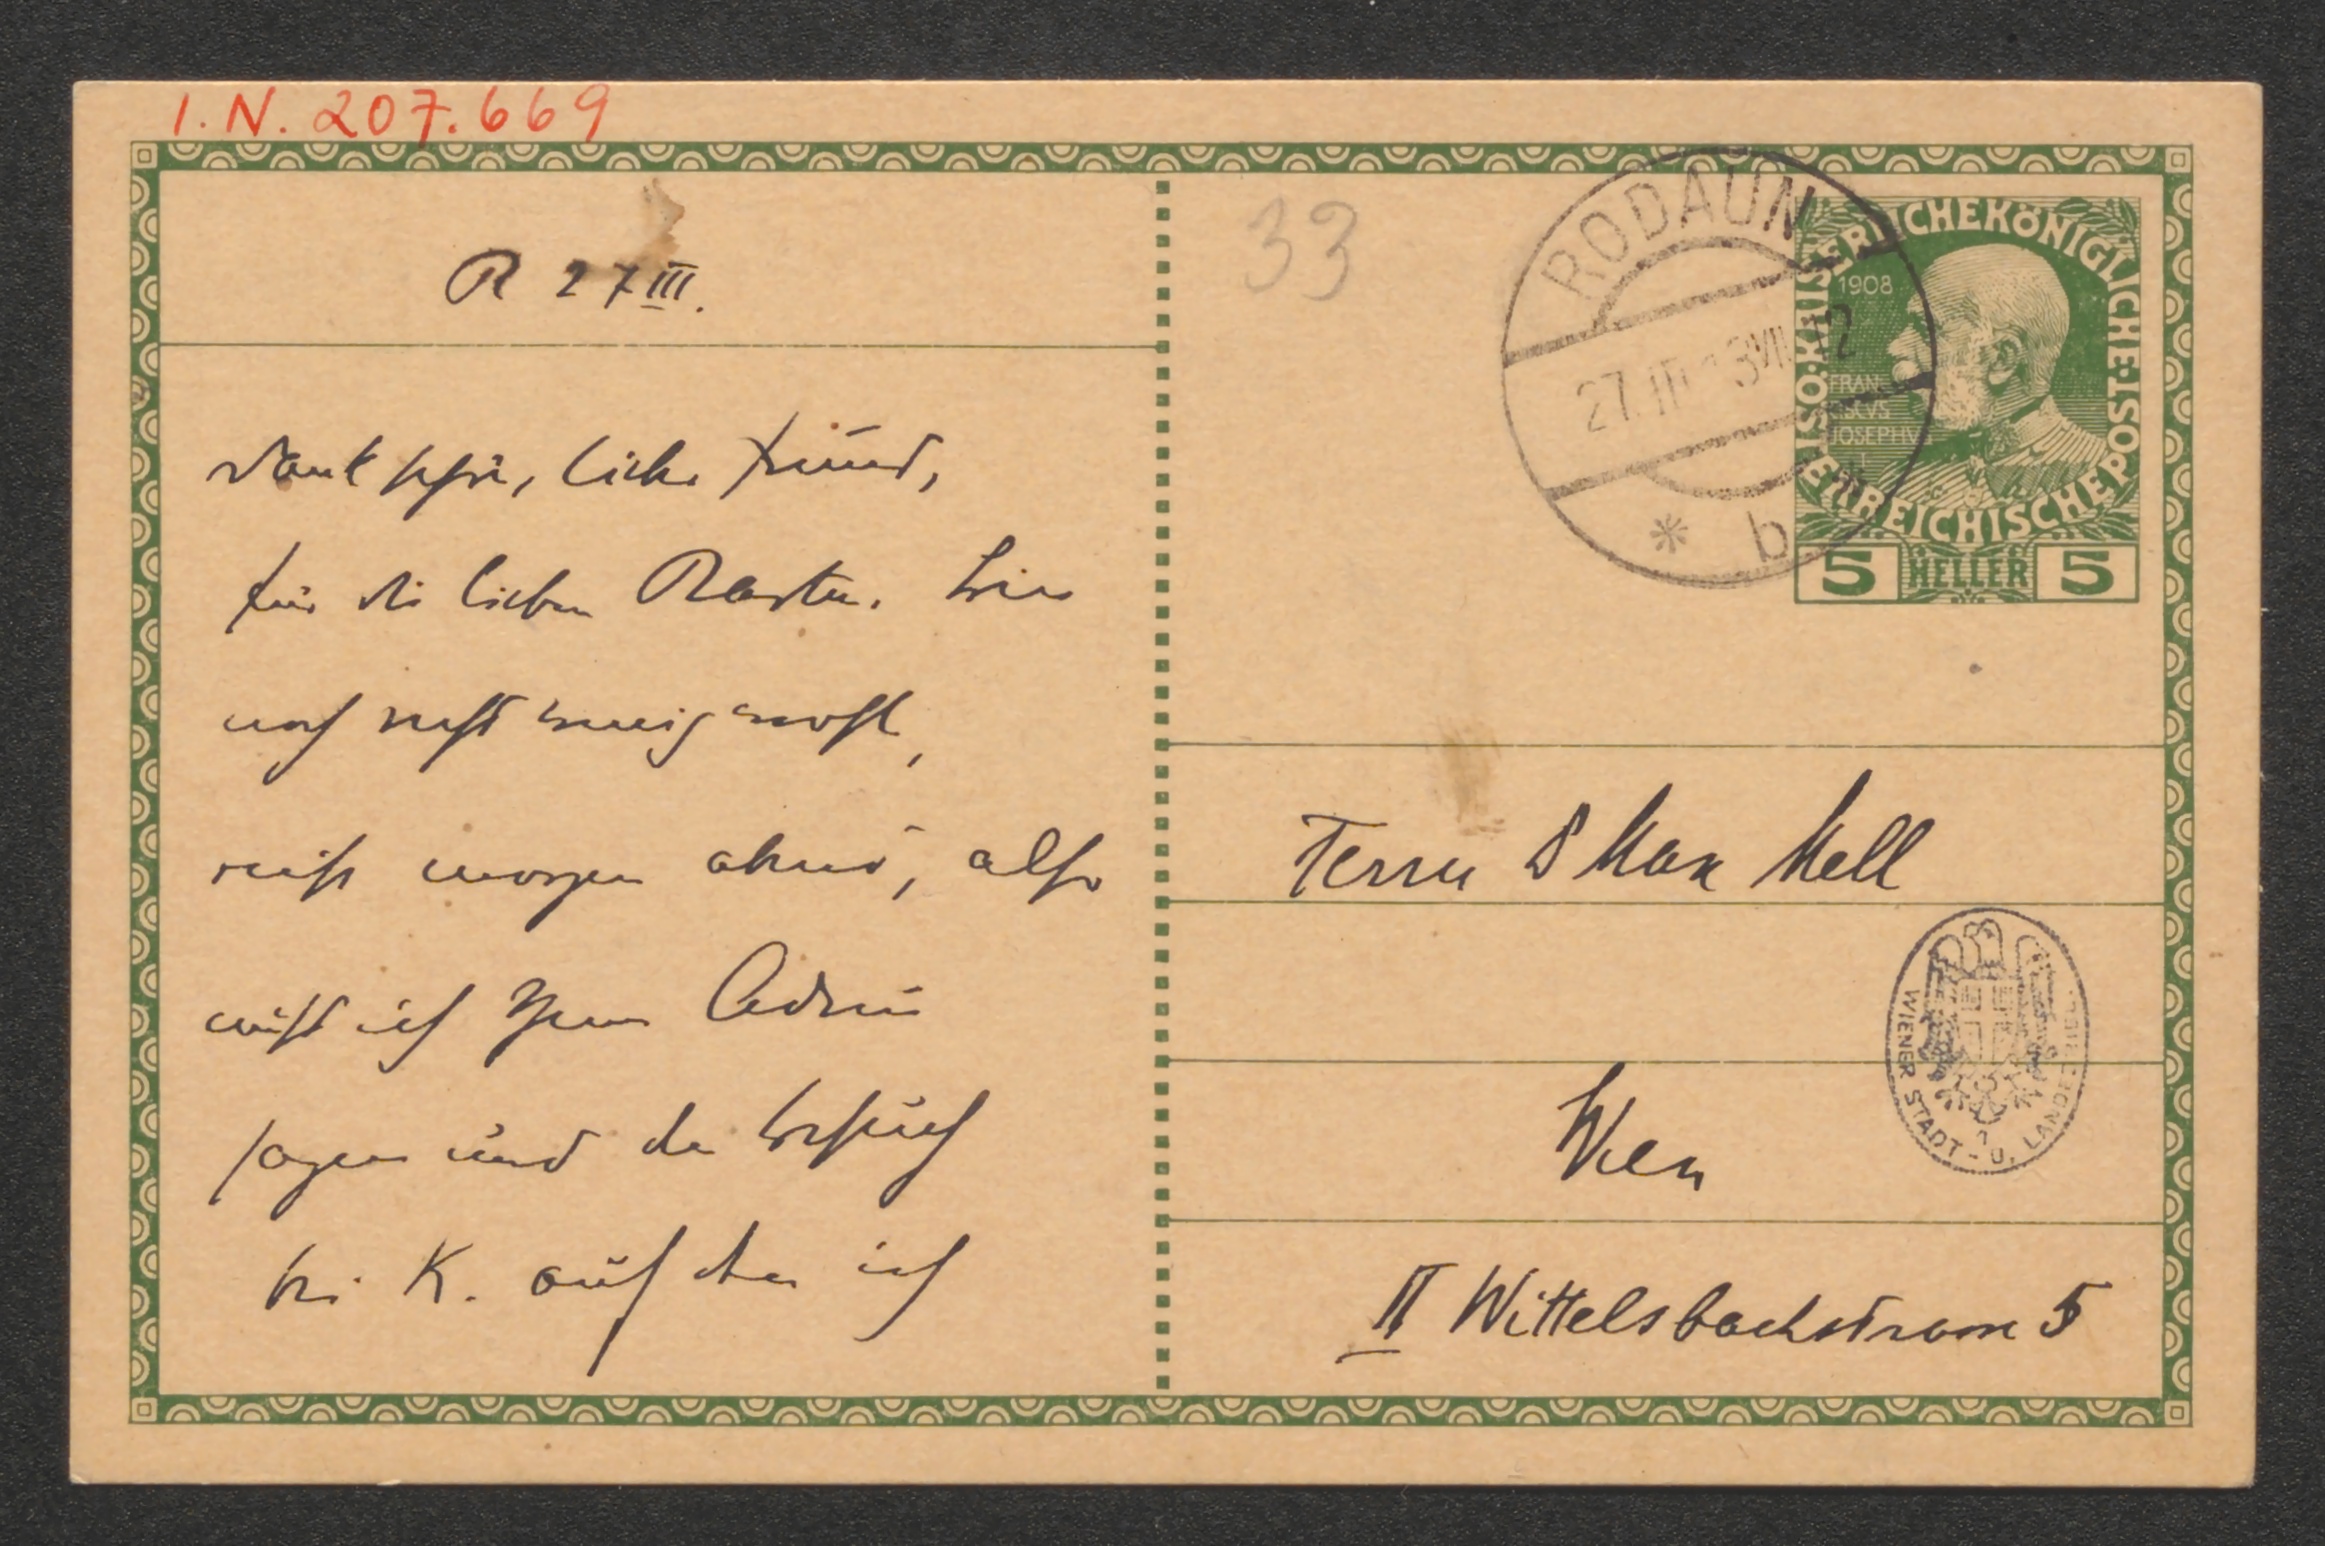 I.N. 207.669
R 27 III.
33
RODAUN
27.III 13 VII 12
* b *
KAISERLICHE KÖNIGLICHE ÖSTERREICHISCHE POST
1908
FRANCISCVS JOSEPHVS I
5 HELLER 5
Dank sehr, lieber Freund,
für die lieben Karten. bin
noch recht wenig wohl,
reise morgen abend, also
muss ich Ihnen Adieu
sagen und den Besuch
bei K. auf den ich
Herrn D Max Mell
Wien
II Wittelsbachstrasse 5
WIENER STADT- U. LANDES